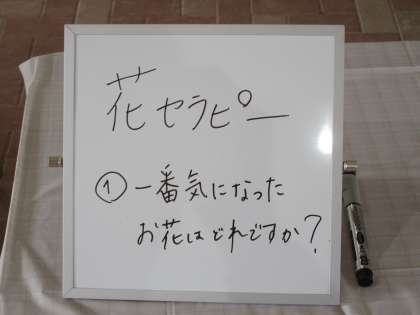 花セラピー
① 一番気になった
お花はどれですか？